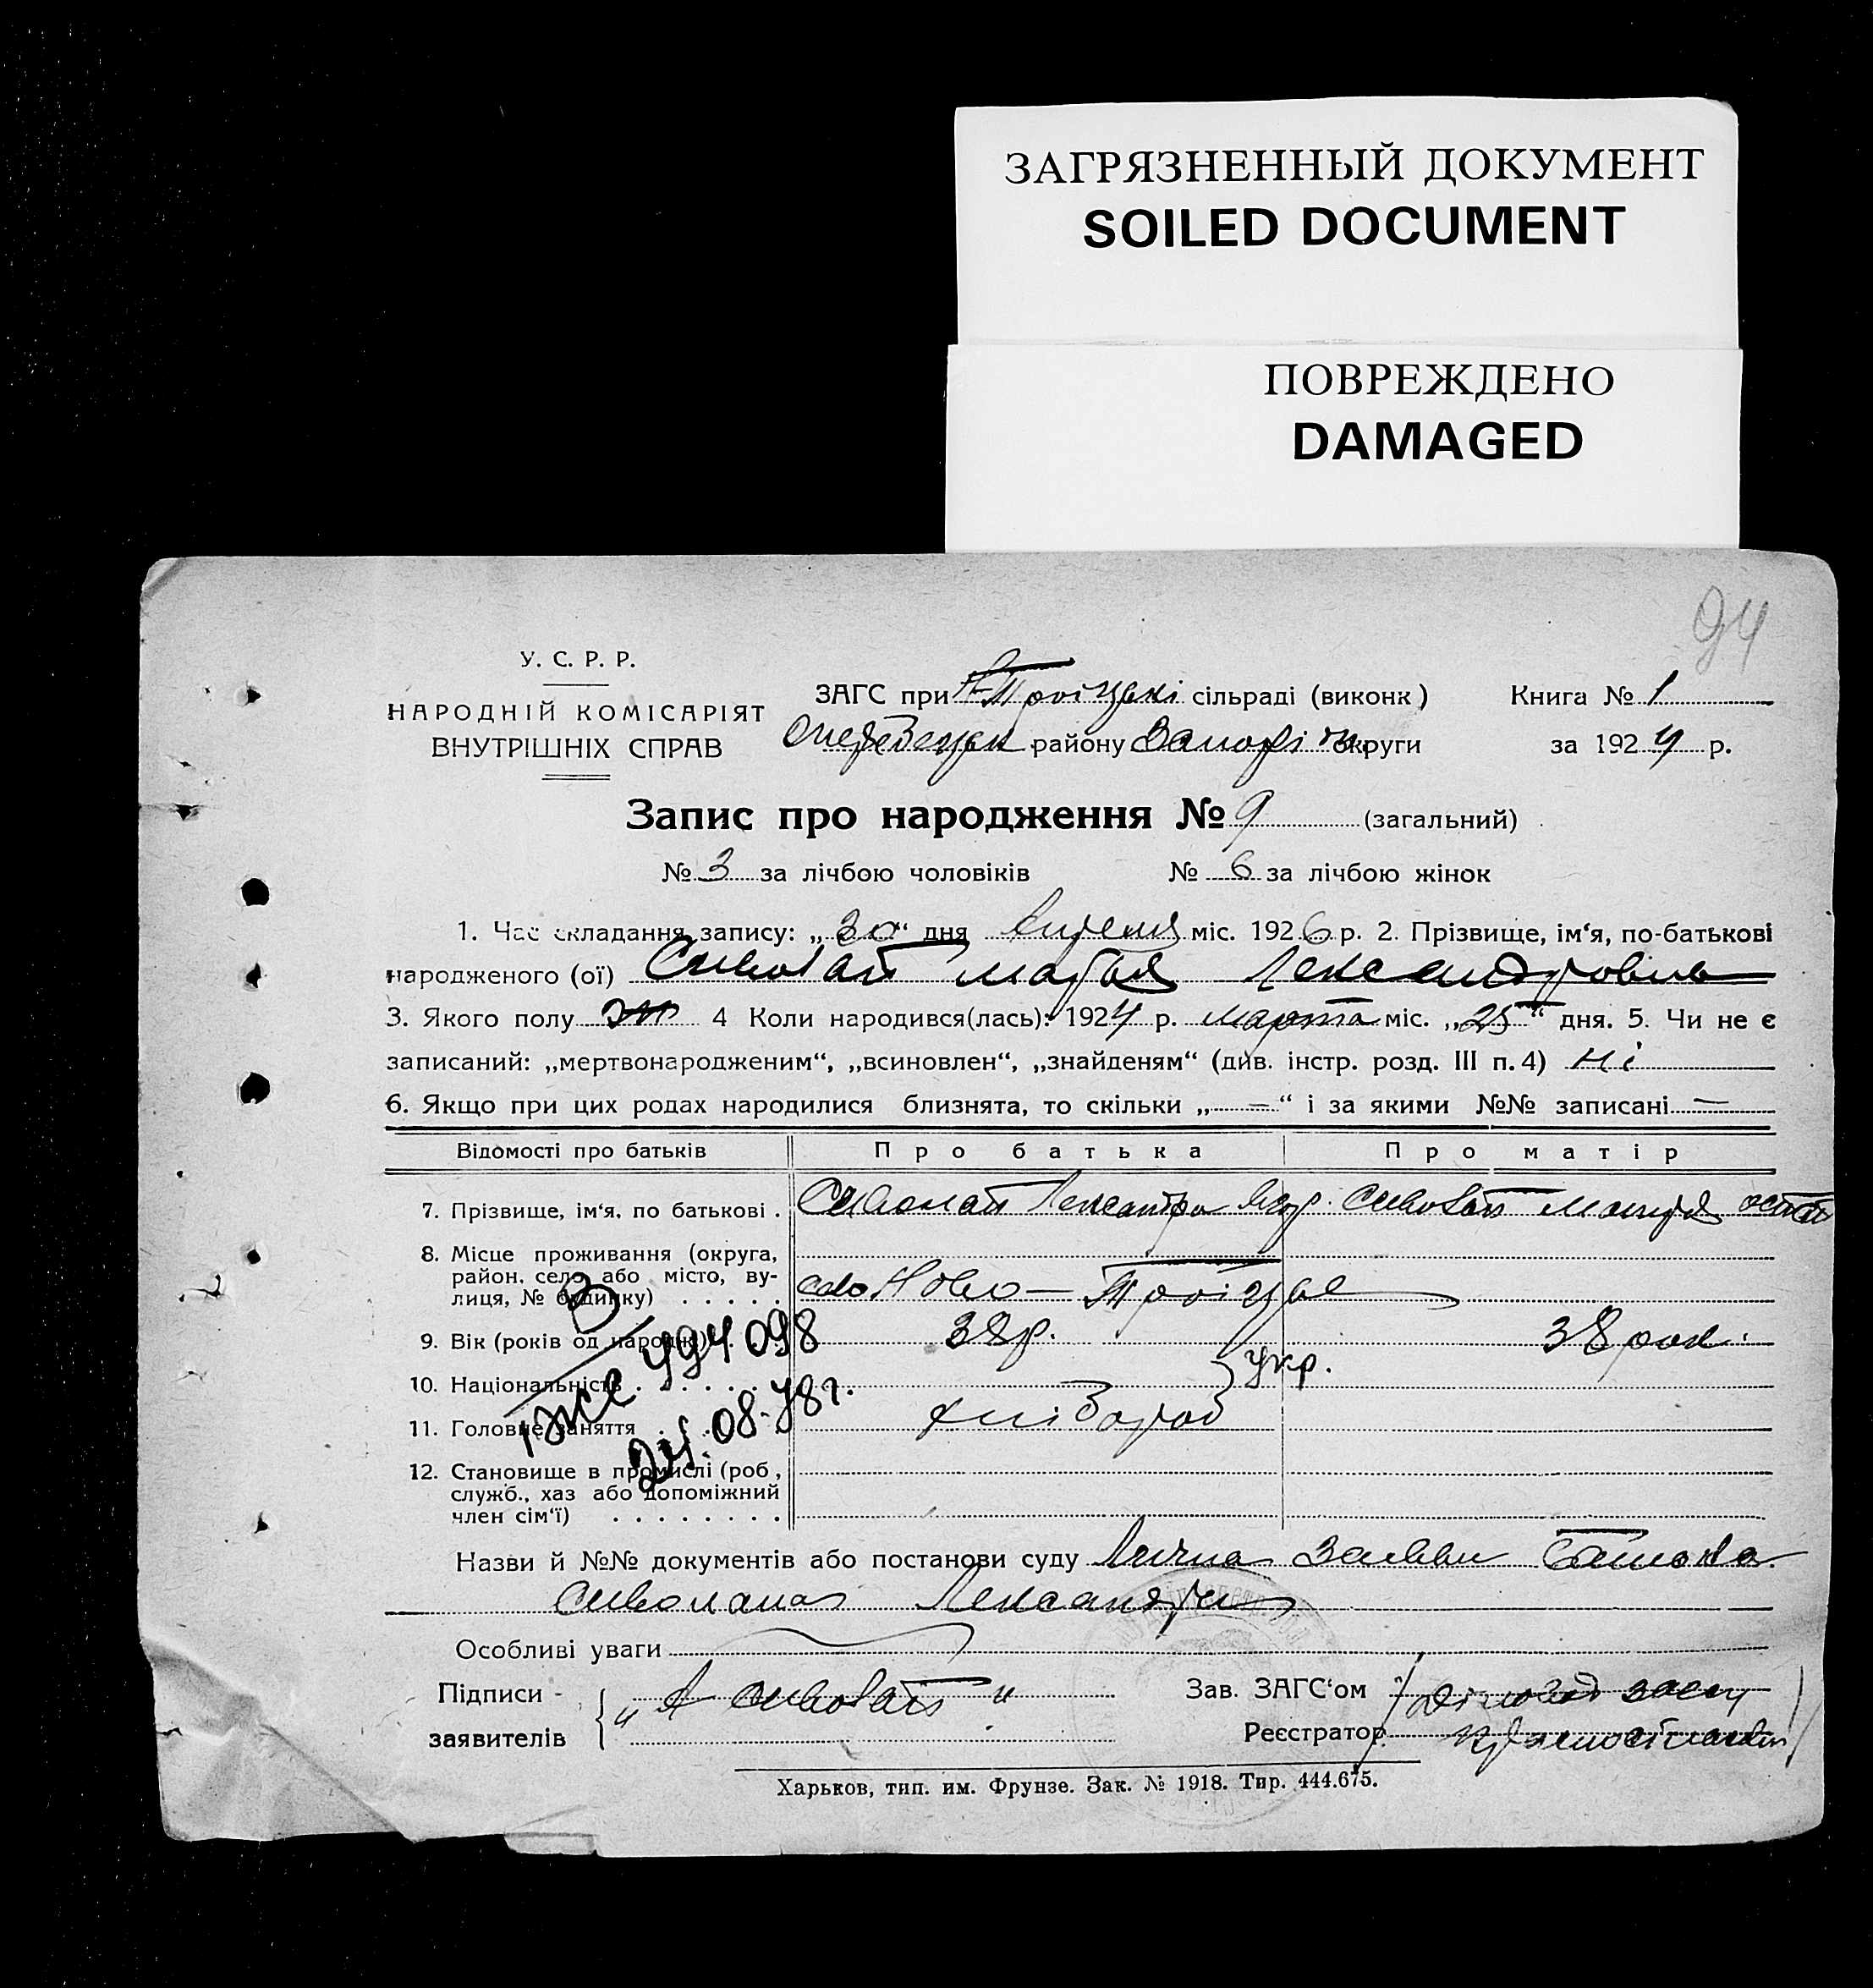 ЗАГРЯЗНЕННЫЙ ДОКУМЕНТ
SOILED DOCUMENT
ПОВРЕЖДЕНО
DAMAGED
94
У. С. Р. Р.
НАРОДНІЙ КОМІСАРІЯТ
ВНУТРІШНІХ СПРАВ
ЗАГС при Н-Троіцькі сільраді (виконк)
району Запоріж округи
Книга № 1
за 1924 р.
Запис про народження № 9 (загальний)
№ 3 за лічбою чоловіків № 6 за лічбою жінок
1. Час складання запису: „30“ дня Апреля міс. 1926 р. 2. Прізвище, ім‘я, по-батькові
народженого (ої) Сиволап Марья Лександровна
3. Якого полу ж 4 Коли народився(лась): 1924 р. марта міс. „25“ дня. 5. Чи не є
записаний: „мертвонародженим“, „всиновлен“, „знайденям“ (див. інстр. розд. III п. 4) ні
6. Якщо при цих родах народилися близнята, то скільки „—“ і за якими №№ записані —
Відомості про батьків Про батька Про матір
7. Прізвище, ім‘я, по батькові . Сиволап Лександра Сиволап
8. Місце проживання (округа,
район, село або місто, ву-
лиця, № будинку) . . . . . село Ново-Троіцьке
9. Вік (років од народж.) 38р. 38 рок.
10. Національність . . . . . укр.
11. Головне заняття хлібороб
12. Становище в промислі (роб,
служб., хаз або допоміжний
член сім‘ї) . . . . . . . .
494098
24.08.78г.
Назви й №№ документів або постанови суду Лична заява батька
Сиволапа Лександри
Особливі уваги
Підписи -
заявителів
„А Сиволап“
Зав. ЗАГС‘ом
Реєстратор
Харьков, тип. им. Фрунзе. Зак. № 1918. Тир. 444.675.